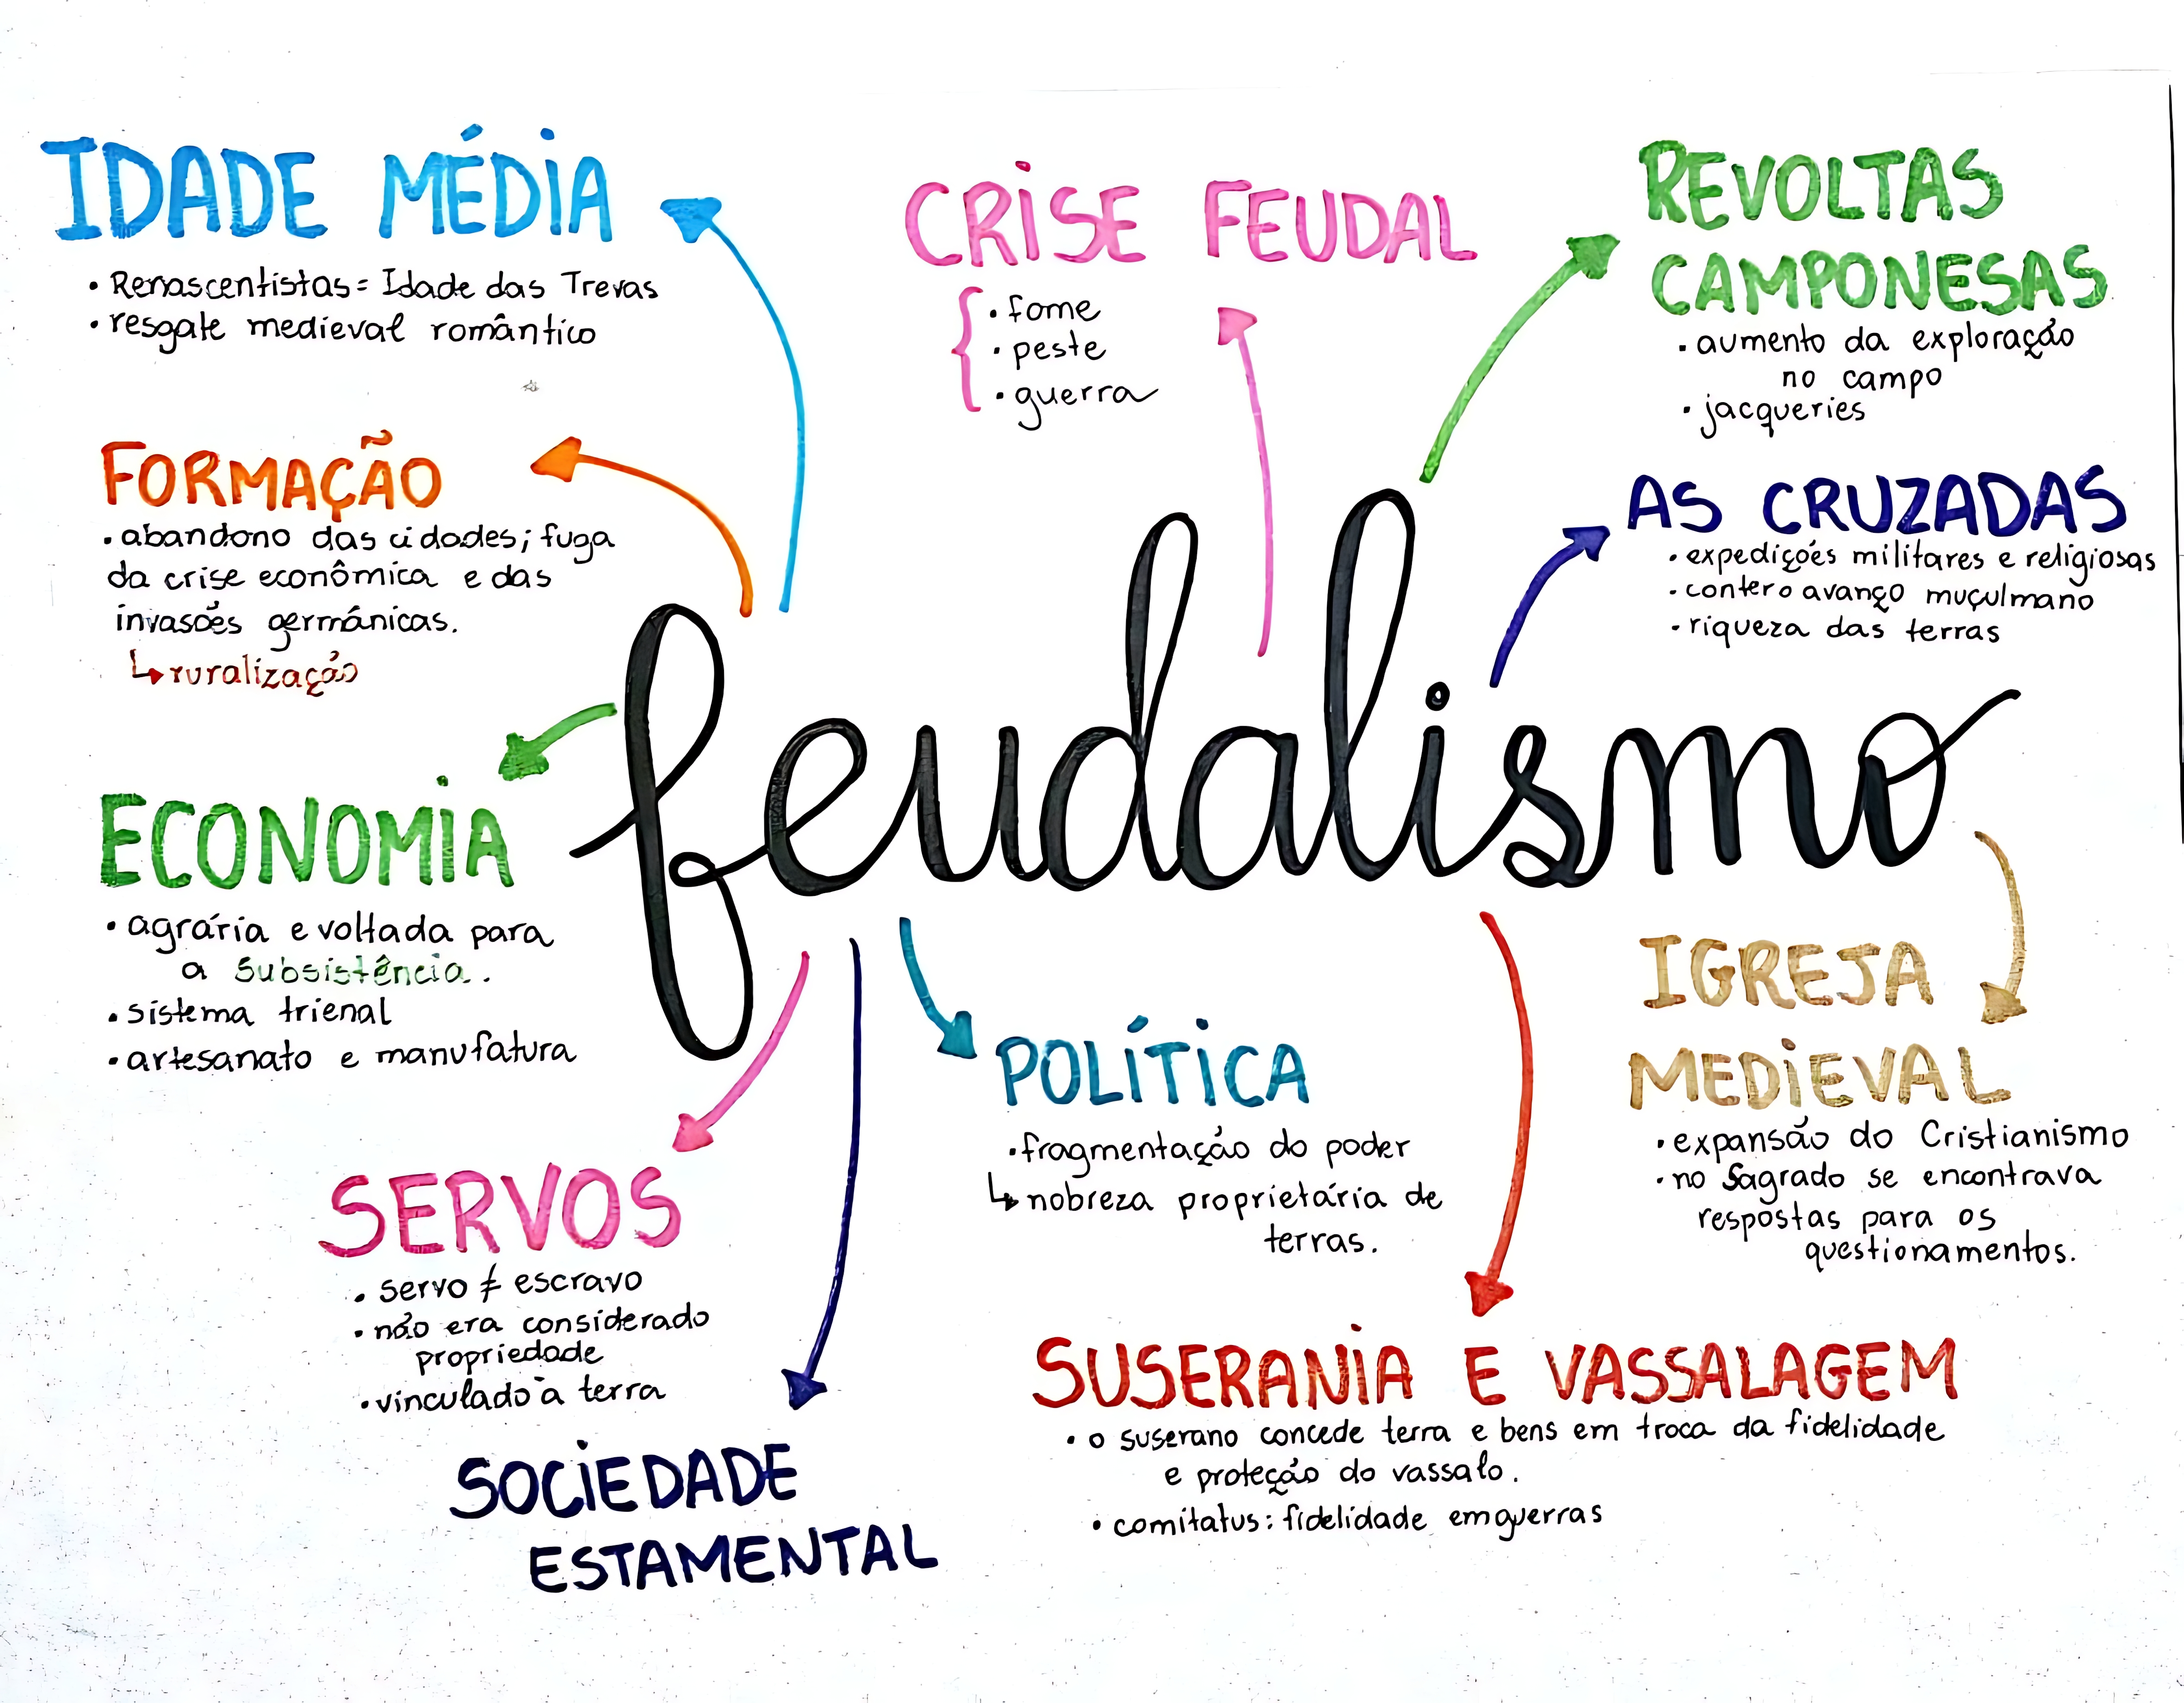 IDADE MÉDIA
• Renascentistas = Idade das Trevas
• resgate medieval romântico
CRISE FEUDAL
• fome
• peste
• guerra
REVOLTAS
CAMPONESAS
• aumento da exploração
no campo
• jacqueries
FORMAÇÃO
• abandono das cidades; fuga
da crise econômica e das
invasões germânicas.
↳ ruralização
AS CRUZADAS
• expedições militares e religiosas
• conter o avanço muçulmano
• riqueza das terras
feudalismo
ECONOMIA
• agrária e voltada para
a subsistência.
• sistema trienal
• artesanato e manufatura
SERVOS
• servo ≠ escravo
• não era considerado
propriedade
• vinculado à terra
SOCIEDADE
ESTAMENTAL
POLÍTICA
• fragmentação do poder
↳ nobreza proprietária de
terras.
IGREJA
MEDIEVAL
• expansão do Cristianismo
• no Sagrado se encontrava
respostas para os
questionamentos.
SUSERANIA E VASSALAGEM
• o suserano concede terra e bens em troca da fidelidade
e proteção do vassalo.
• comitatus: fidelidade em guerras